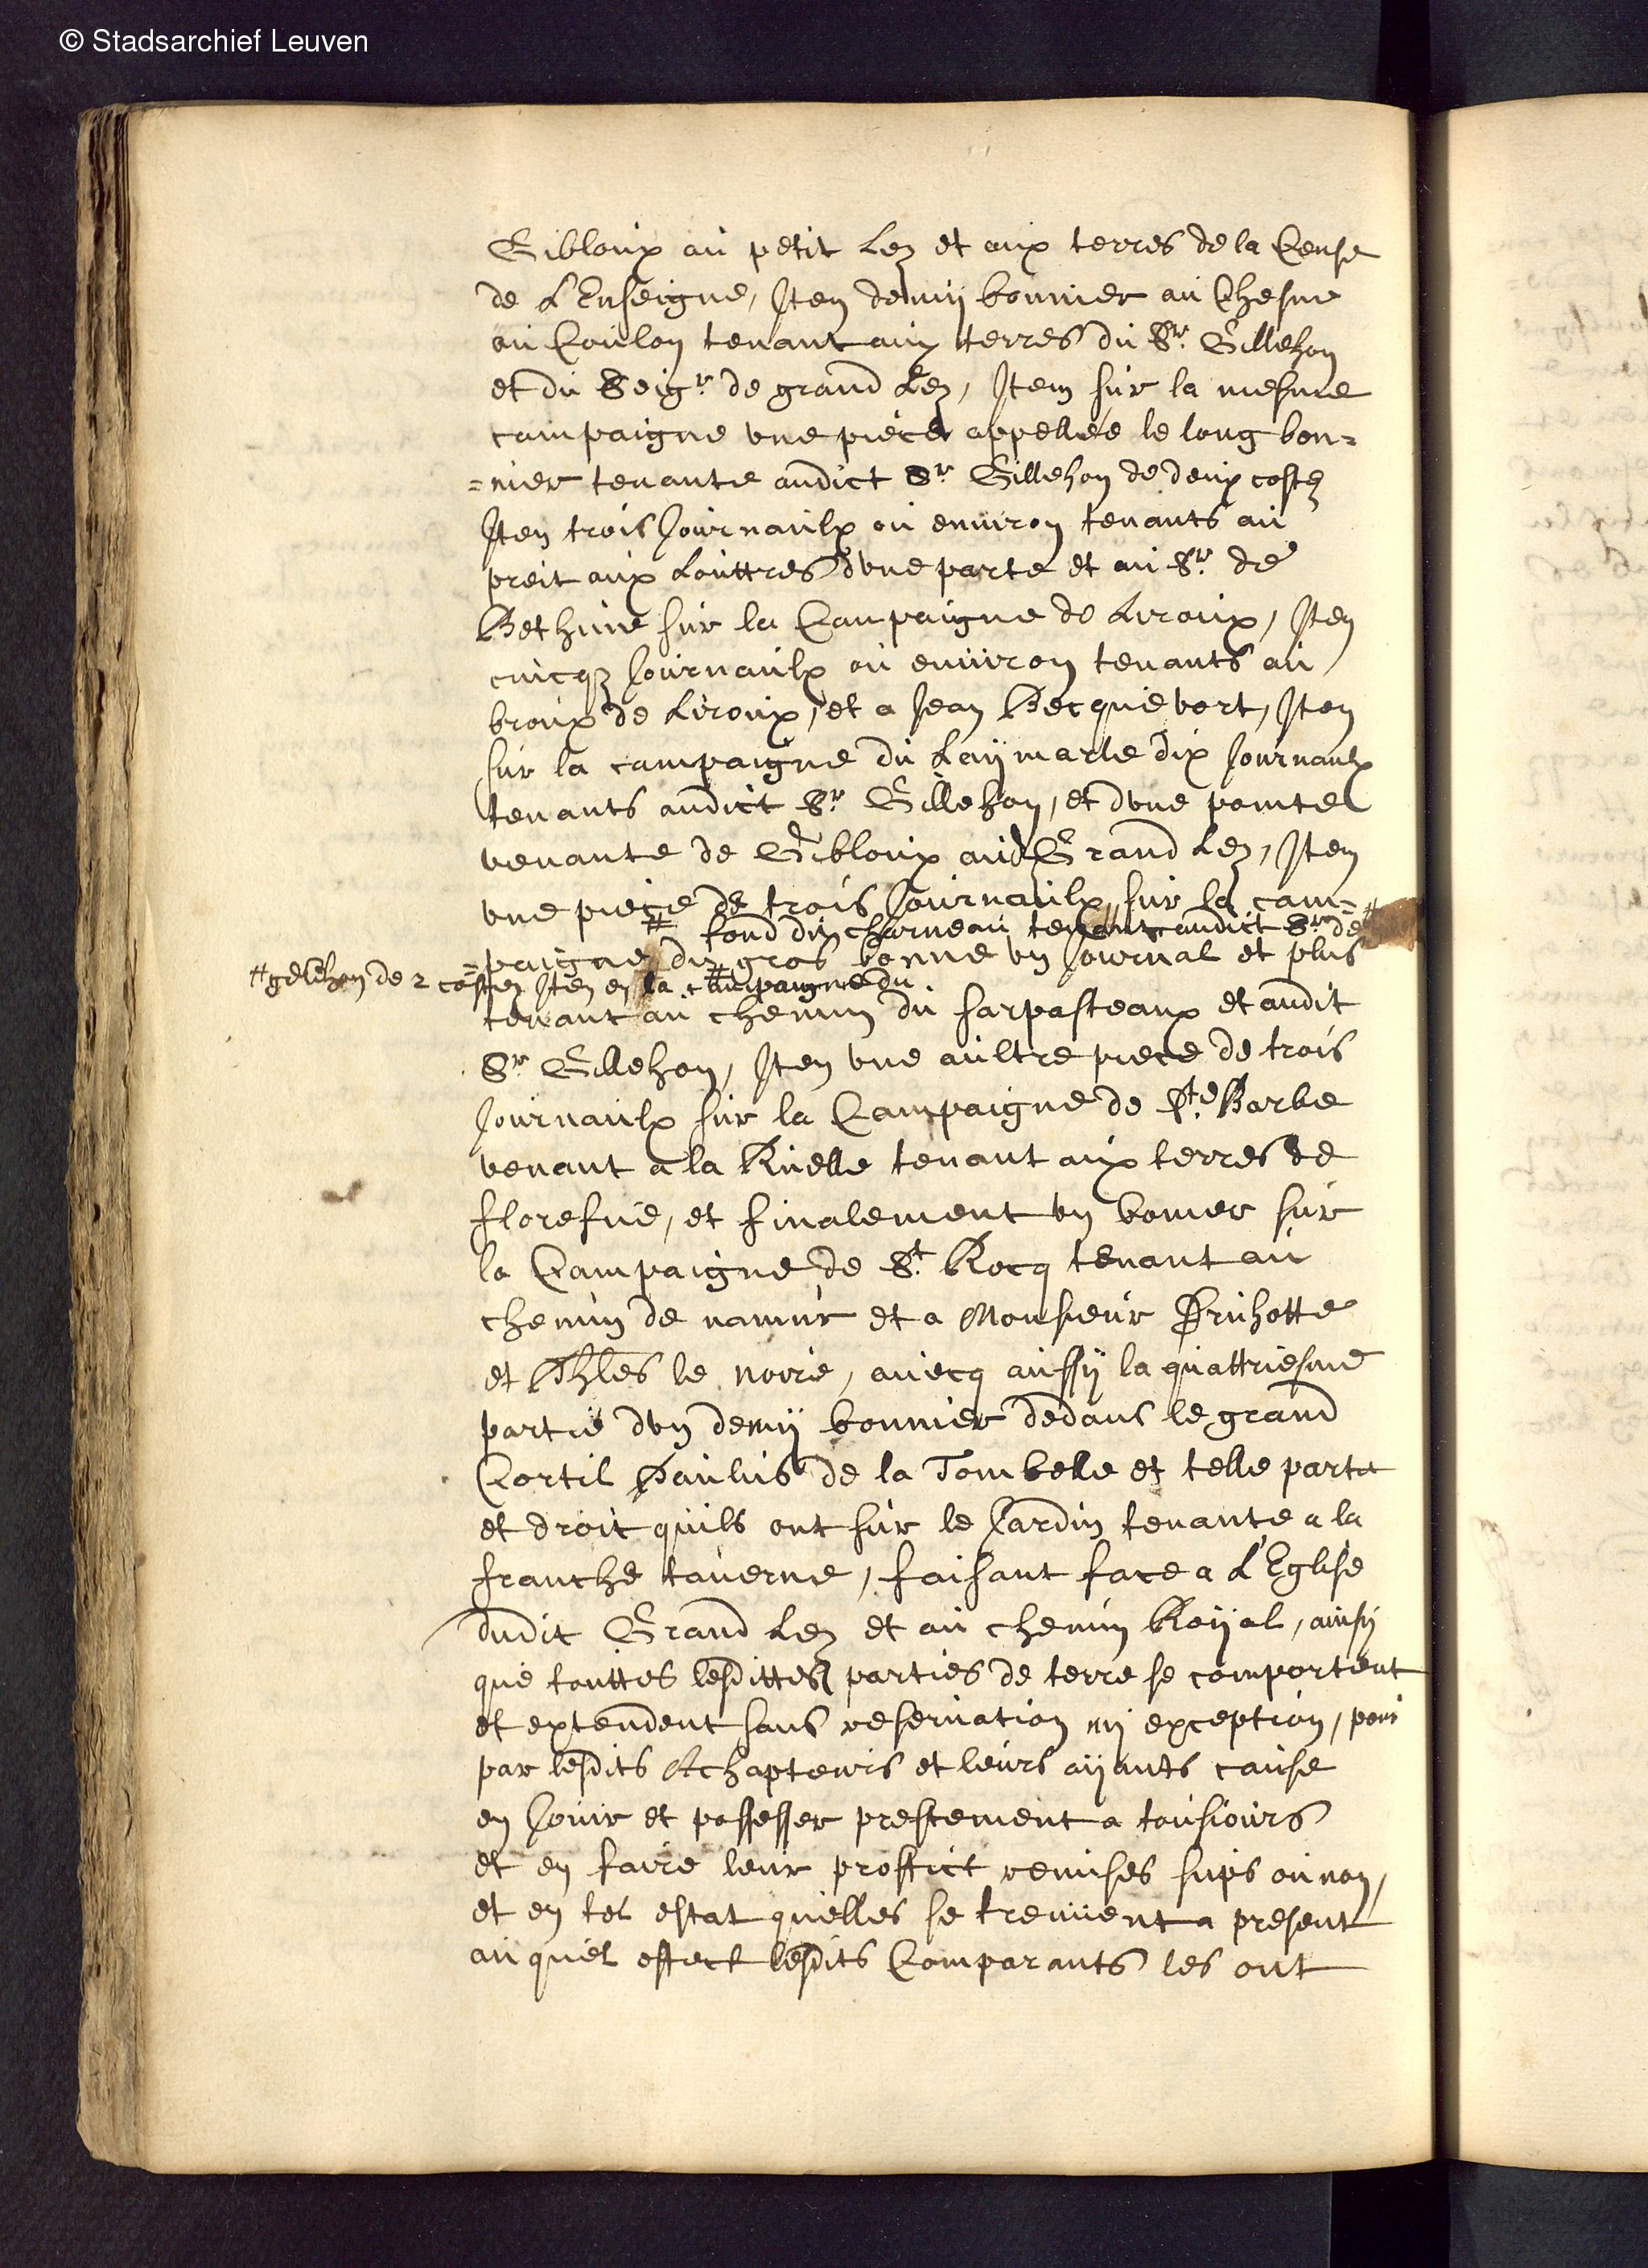 © Stadsarchief Leuven
Gibloux au petit Lez et aux terres de la Cense
de L'Enseigne, Item demij bonnier au Chesne
au Coulon tenant aux terres du Sr. Gillehon
et du Seigr. de grand Lez, Item sur la mesme
campaigne vne piece appellée le long bon=
=nier tenante audict Sr Gillehon de deux costez
Item trois Journaulx ou enuiron tenants au
preit aux Louttres dvne parte et au Sr. de
Bethune sur la Campaigne de Liroux, Item
cincqz Journaulx ou enuiron tenants au
broux de Liroux, et a Jean Becquevort, Item
sur la campaigne du Laijmarle dix Journaulx
tenants audict Sr. Gillehon, et dvne pointe
venante de Gibloux au Grand Lez, Item
vne piece de trois Journaulx sur la cam=
# fond du charneau tenant audict Sr de #
=paigne du gros bonne vn Journal et plus
#gelehon de 2 costez Item en la # campaigne du
tenant au chemin du sarpasteaux et audit
Sr Gillehon, Item vne aultre piece de trois
Journaulx sur la Campaigne de Ste. Barbe
venant a la Ruelle tenant aux terres de
florefue, et finalement vn bonier sur
la Campaigne de St. Rocq tenant au
chemin de namur et a Monsieur Pruhotte
et Chles le noire, auecq aussij la quattriesme
partie dvn demij bonnier dedans le grand
Cortil Paulus de la Tombelle et telle parte
et droit quils ont sur le Jardin tenante a la
franche tauerne, faisant face a L'Eglise
dudit Grand Lez et au chemin Roijal, ainsij
que touttes lesdittes parties de terre se comportent
et extendent sans reseruation nij exception, pour
par lesdits Achapteurs et leurs aijants cause
en Jouir et possesser prestement a tousiours
et en faire leur proffict remises sups ou non,
et en tel estat quelles se treuuent a present
auquel effect lesdits Comparants les ont